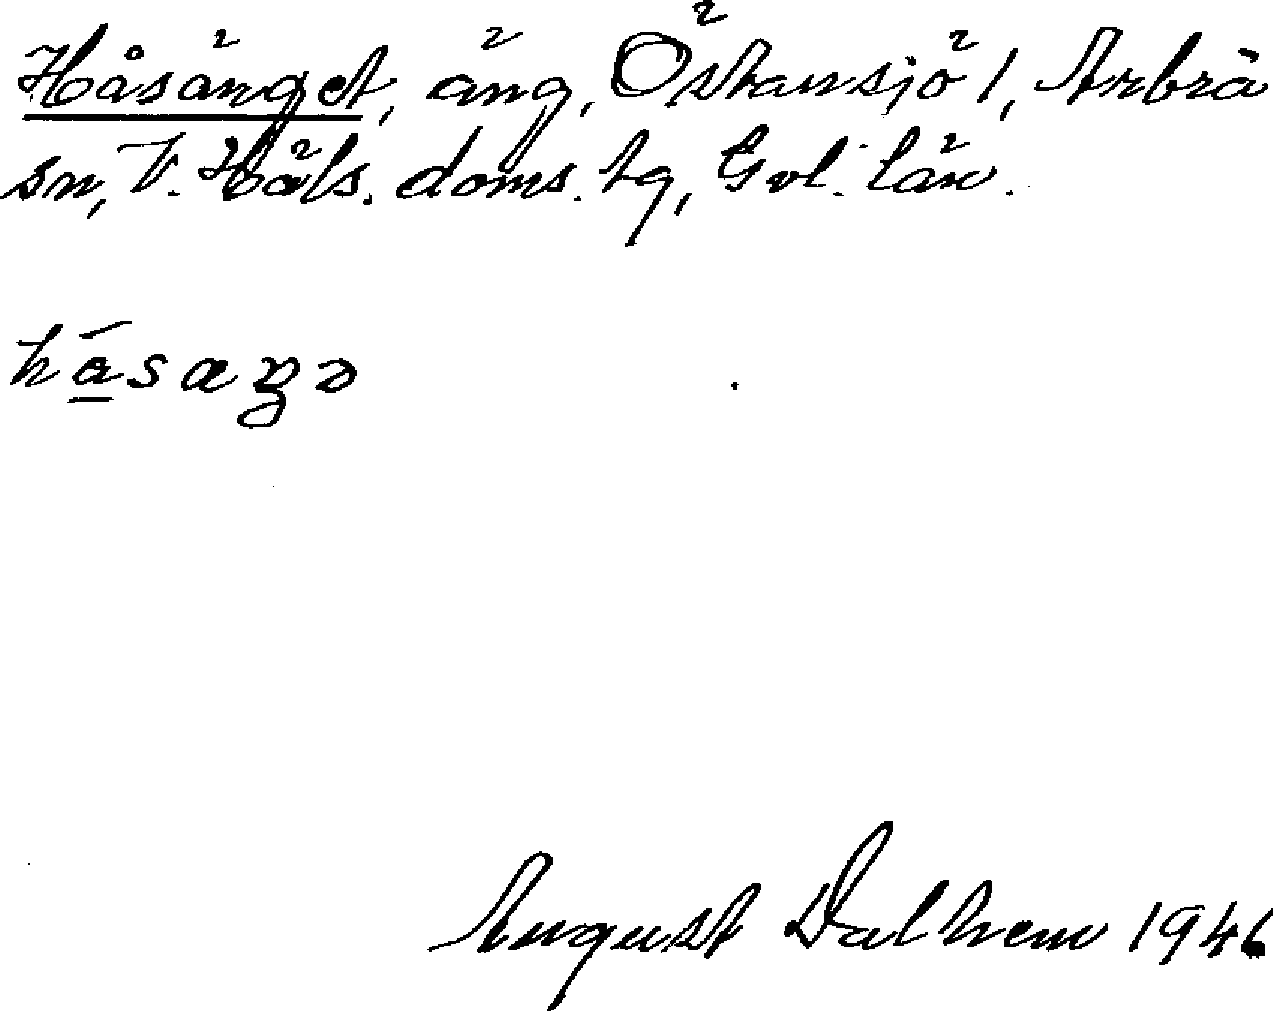 Håsänget, äng, Östansjö 1, Arbrå
sn, V. Häls. doms. tg, Gvl. län.
hå̲sæŋə
August Dalhem 1946